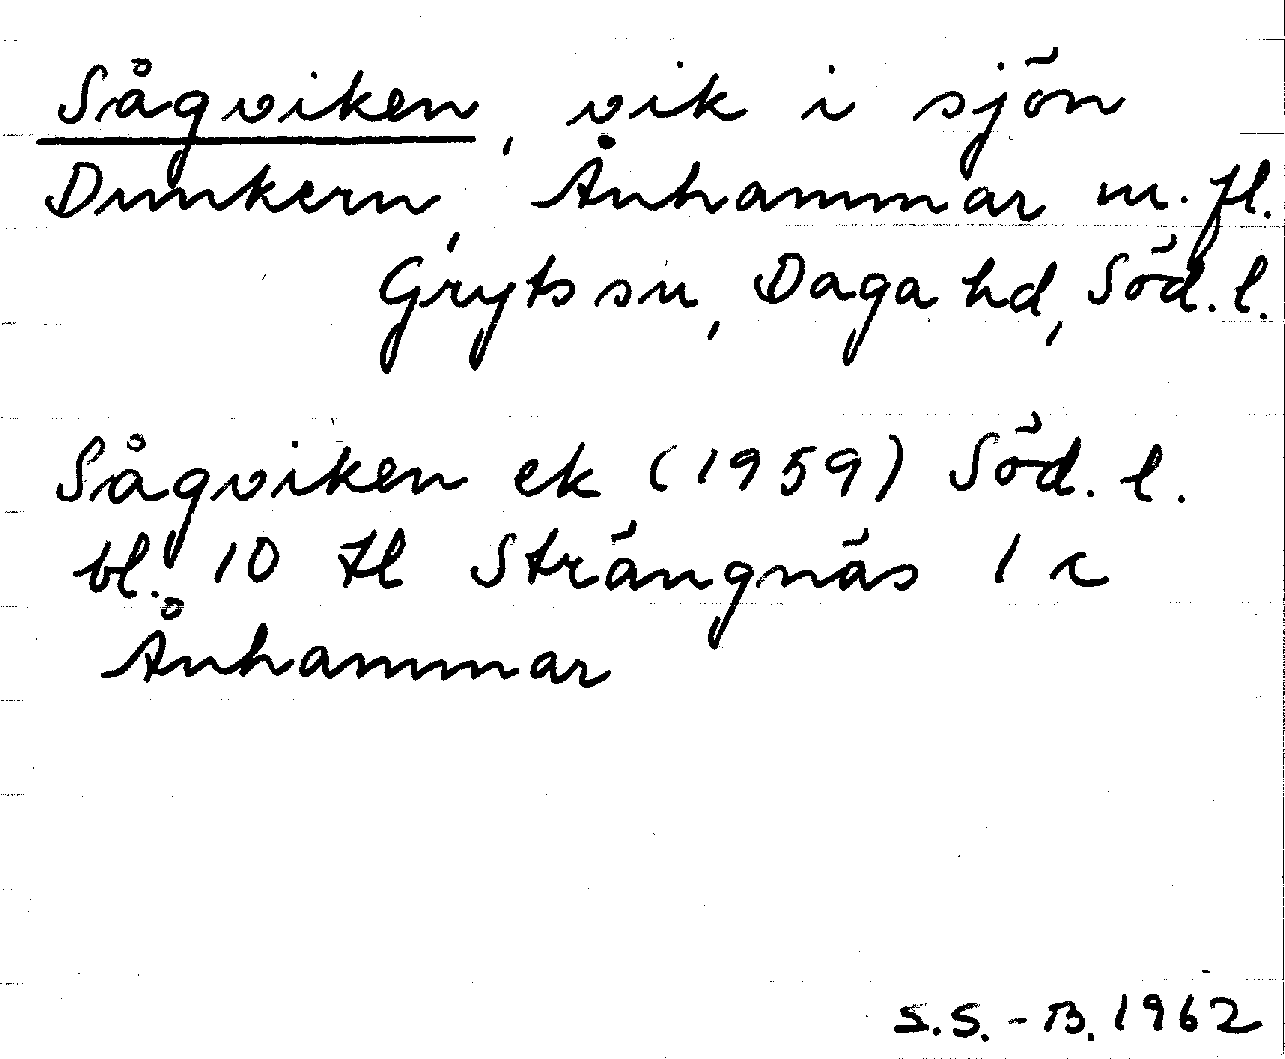 Sågviken, vik i sjön
Dunkern, Ånhammar m. fl.
Gryts sn, Daga hd, Söd. l.
Sågviken ek (1959) Söd. l.
bl. 10 H Strängnäs 1 c
Ånhammar
S.S.-B. 1962